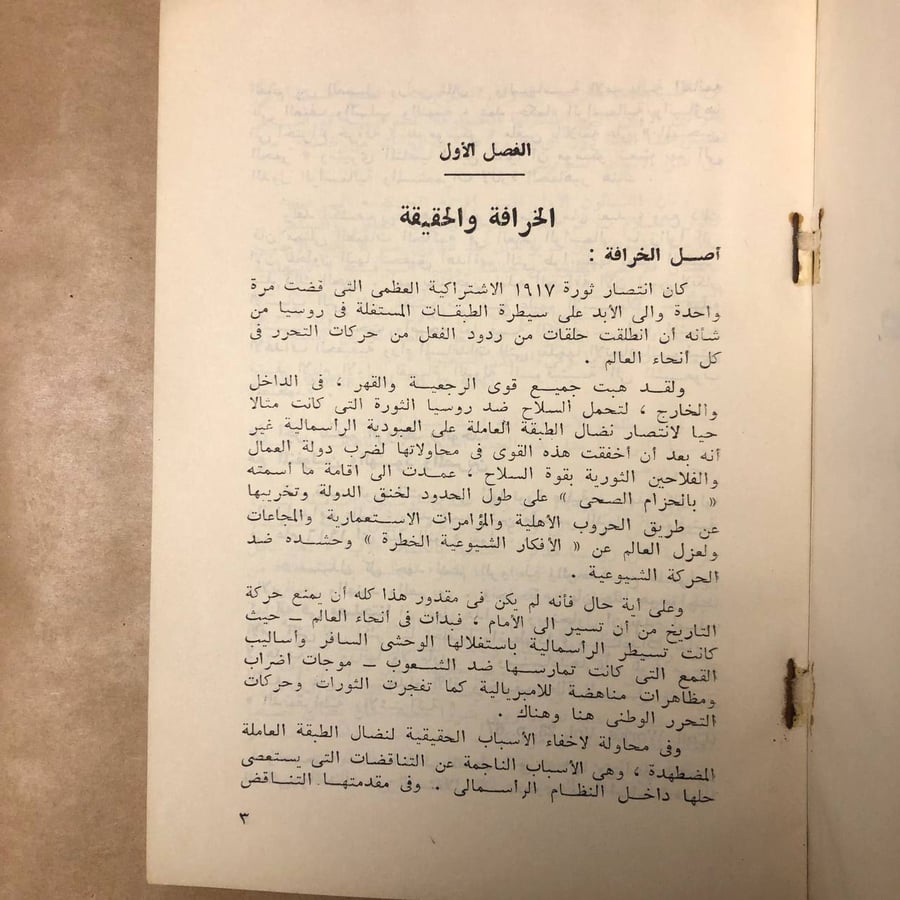 الفصل الأول
الخرافة والحقيقة
أصــل الخرافة :
كان انتصار ثورة ١٩١٧ الاشتراكية العظمى التى قضت مرة
واحدة والى الأبد على سيطرة الطبقات المستغلة فى روسيا من
شأنه أن انطلقت حلقات من ردود الفعل من حركات التحرر فى
كل أنحاء العالم .
ولقد هبت جميع قوى الرجعية والقهر ، فى الداخل
والخارج ، لتحمل السلاح ضد روسيا الثورة التى كانت مثالا
حيا لانتصار نضال الطبقة العاملة على العبودية الرأسمالية غير
أنه بعد أن أخفقت هذه القوى فى محاولاتها لضرب دولة العمال
والفلاحين الثورية بقوة السلاح ، عمــدت الى اقامة ما أسمته
« بالحزام الصحى » على طول الحدود لخنق الدولة وتخريبها
عن طريق الحروب الأهلية والمؤامرات الاستعمارية والمجاعات
ولعزل العالم عن « الأفكار الشيوعية الخطرة » وحشــده ضد
الحركة الشيوعية .
وعلى أية حال فأنه لم يكن فى مقدور هذا كله أن يمنع حركة
التاريخ من أن تسير الى الأمام ، فبدأت فى أنحاء العالم ــ حيث
كانت تسيطر الرأسمالية باستغلالها الوحشى السافر وأساليب
القمع التى كانت تمارســها ضد الشــعوب ــ موجات اضراب
ومظاهرات مناهضة للامبريالية كما تفجرت الثورات وحركات
التحرر الوطنى هنا وهناك .
وفى محاولة لاخفاء الأسباب الحقيقية لنضال الطبقة العاملة
المضطهدة ، وهى الأسباب الناجمة عن التناقضات التى يستعصى
حلها داخل النظام الرأسمالى . وفى مقدمتها التناقض
٣